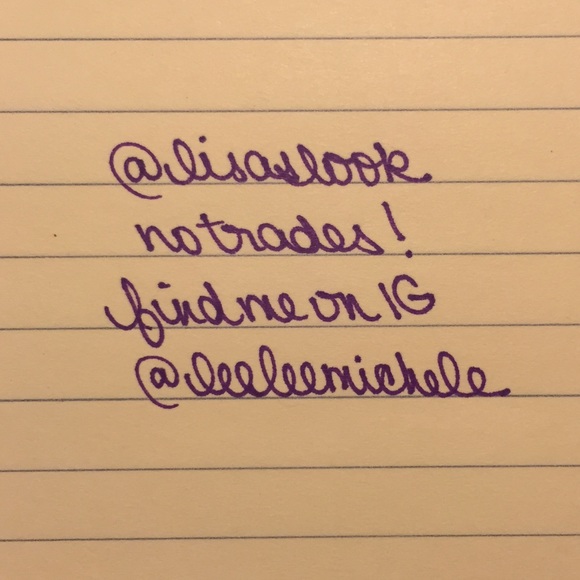 @lisaslook
no trades!
find me on IG
@leeleemichele